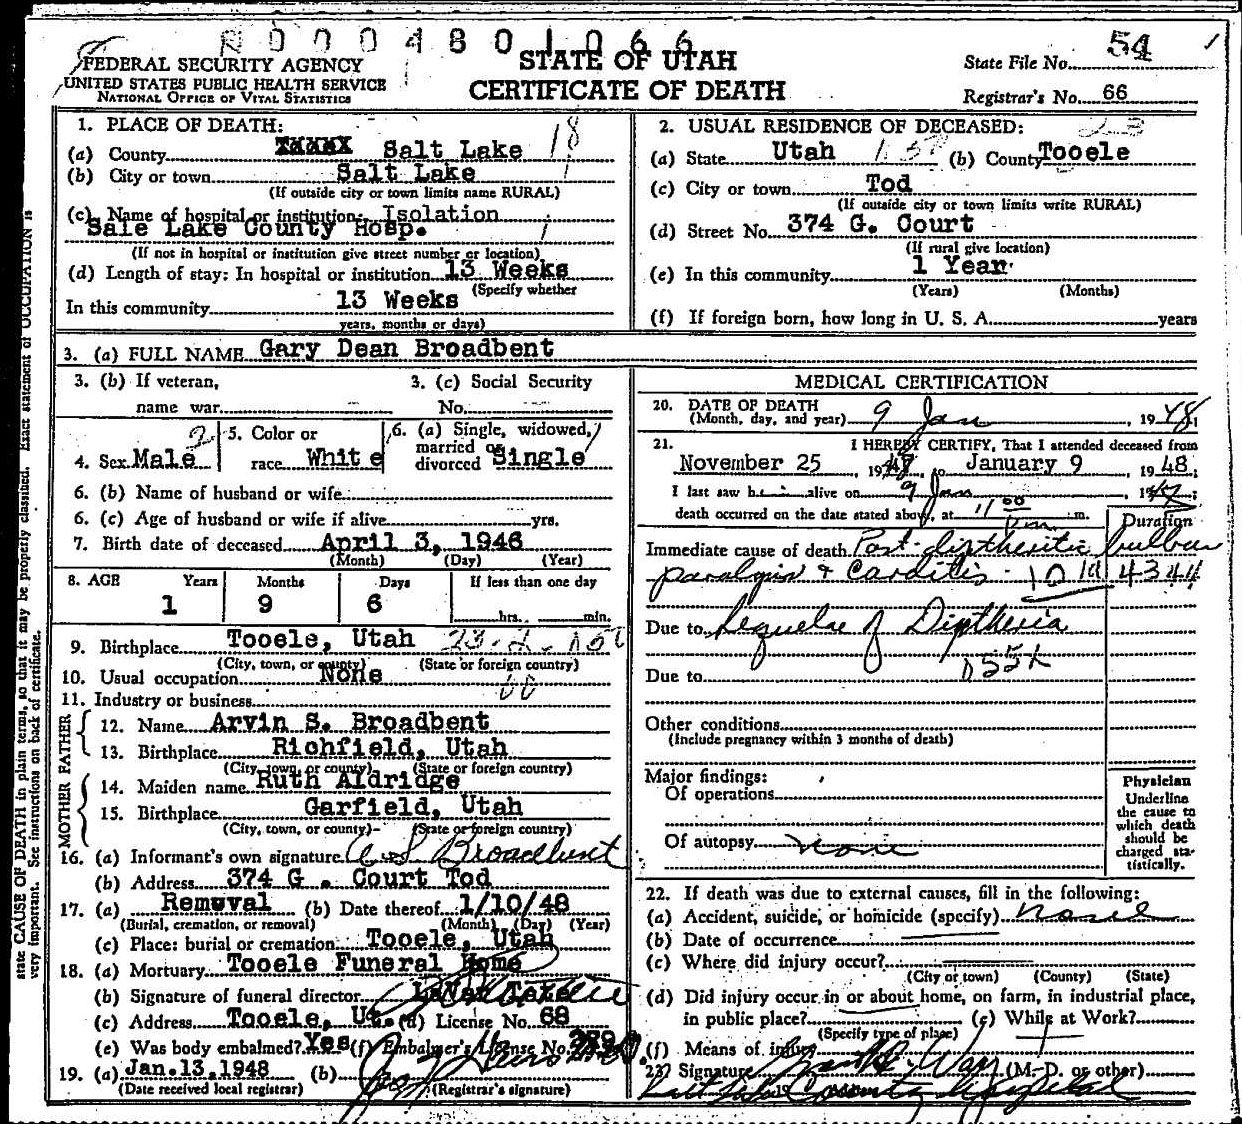 R 0 0 0 4 8 0 1 0 6 6
FEDERAL SECURITY AGENCY
UNITED STATES PUBLIC HEALTH SERVICE
NATIONAL OFFICE OF VITAL STATISTICS
STATE OF UTAH
CERTIFICATE OF DEATH
State File No. 54
Registrar's No. 66
1. PLACE OF DEATH:
(a) County Salt Lake 18
(b) City or town Salt Lake
(If outside city or town limits name RURAL)
(c) Name of hospital or institution: Isolation
Sale Lake County Hosp.
(If not in hospital or institution give street number or location)
(d) Length of stay: In hospital or institution 13 Weeks
(Specify whether
In this community 13 Weeks
years, months or days)
2. USUAL RESIDENCE OF DECEASED:
(a) State Utah (b) County Tooele
(c) City or town Tod
(If outside city or town limits write RURAL)
(d) Street No. 374 G. Court
(If rural give location)
(e) In this community 1 Year
(Years) (Months)
(f) If foreign born, how long in U. S. A. years
3. (a) FULL NAME Gary Dean Broadbent
3. (b) If veteran,
name war
3. (c) Social Security
No.
4. Sex Male
5. Color or
race White
6. (a) Single, widowed,
married or
divorced Single
6. (b) Name of husband or wife
6. (c) Age of husband or wife if alive yrs.
7. Birth date of deceased April 3, 1946
(Month) (Day) (Year)
8. AGE Years Months Days If less than one day
1 9 6 hrs. min.
9. Birthplace Tooele, Utah
(City, town, or county) (State or foreign country)
10. Usual occupation None
11. Industry or business
FATHER
12. Name Arvin S. Broadbent
13. Birthplace Richfield, Utah
(City, town, or county) (State or foreign country)
MOTHER
14. Maiden name Ruth Aldridge
15. Birthplace Garfield, Utah
(City, town, or county) (State or foreign country)
16. (a) Informant's own signature A S Broadbent
(b) Address 374 G . Court Tod
17. (a) Removal (b) Date thereof 1/10/48
(Burial, cremation, or removal) (Month) (Day) (Year)
(c) Place: burial or cremation Tooele, Utah
18. (a) Mortuary Tooele Funeral Home
(b) Signature of funeral director
(c) Address Tooele, Ut. (d) License No. 68
(e) Was body embalmed? Yes (f) Embalmer's License No.
19. (a) Jan.13.1948 (b)
(Date received local registrar) (Registrar's signature)
MEDICAL CERTIFICATION
20. DATE OF DEATH
(Month, day, and year) 9 Jan, 1948;
21. I HEREBY CERTIFY, That I attended deceased from
November 25, 19 to January 9 1948;
I last saw h alive on 9 Jan, 19
death occurred on the date stated above, at 11 00 P m.
Duration
Immediate cause of death Post-diptheritic bulbar
paralysis & Carditis - 10 4344
Due to Sequelae of Diptheria
055X
Due to
Other conditions
(Include pregnancy within 3 months of death)
Major findings:
Of operations
Of autopsy none
Physician
Underline
the cause to
which death
should be
charged sta-
tistically.
22. If death was due to external causes, fill in the following:
(a) Accident, suicide, or homicide (specify) none
(b) Date of occurrence
(c) Where did injury occur?
(City or town) (County) (State)
(d) Did injury occur in or about home, on farm, in industrial place,
in public place? (e) While at Work?
(Specify type of place)
(f) Means of injury
23. Signature (M. D. or other)
Salt Lake County Hospital
state CAUSE OF DEATH in plain terms, so that it may be properly classified. Exact statement of OCCUPATION is
very important. See instructions on back of certificate.